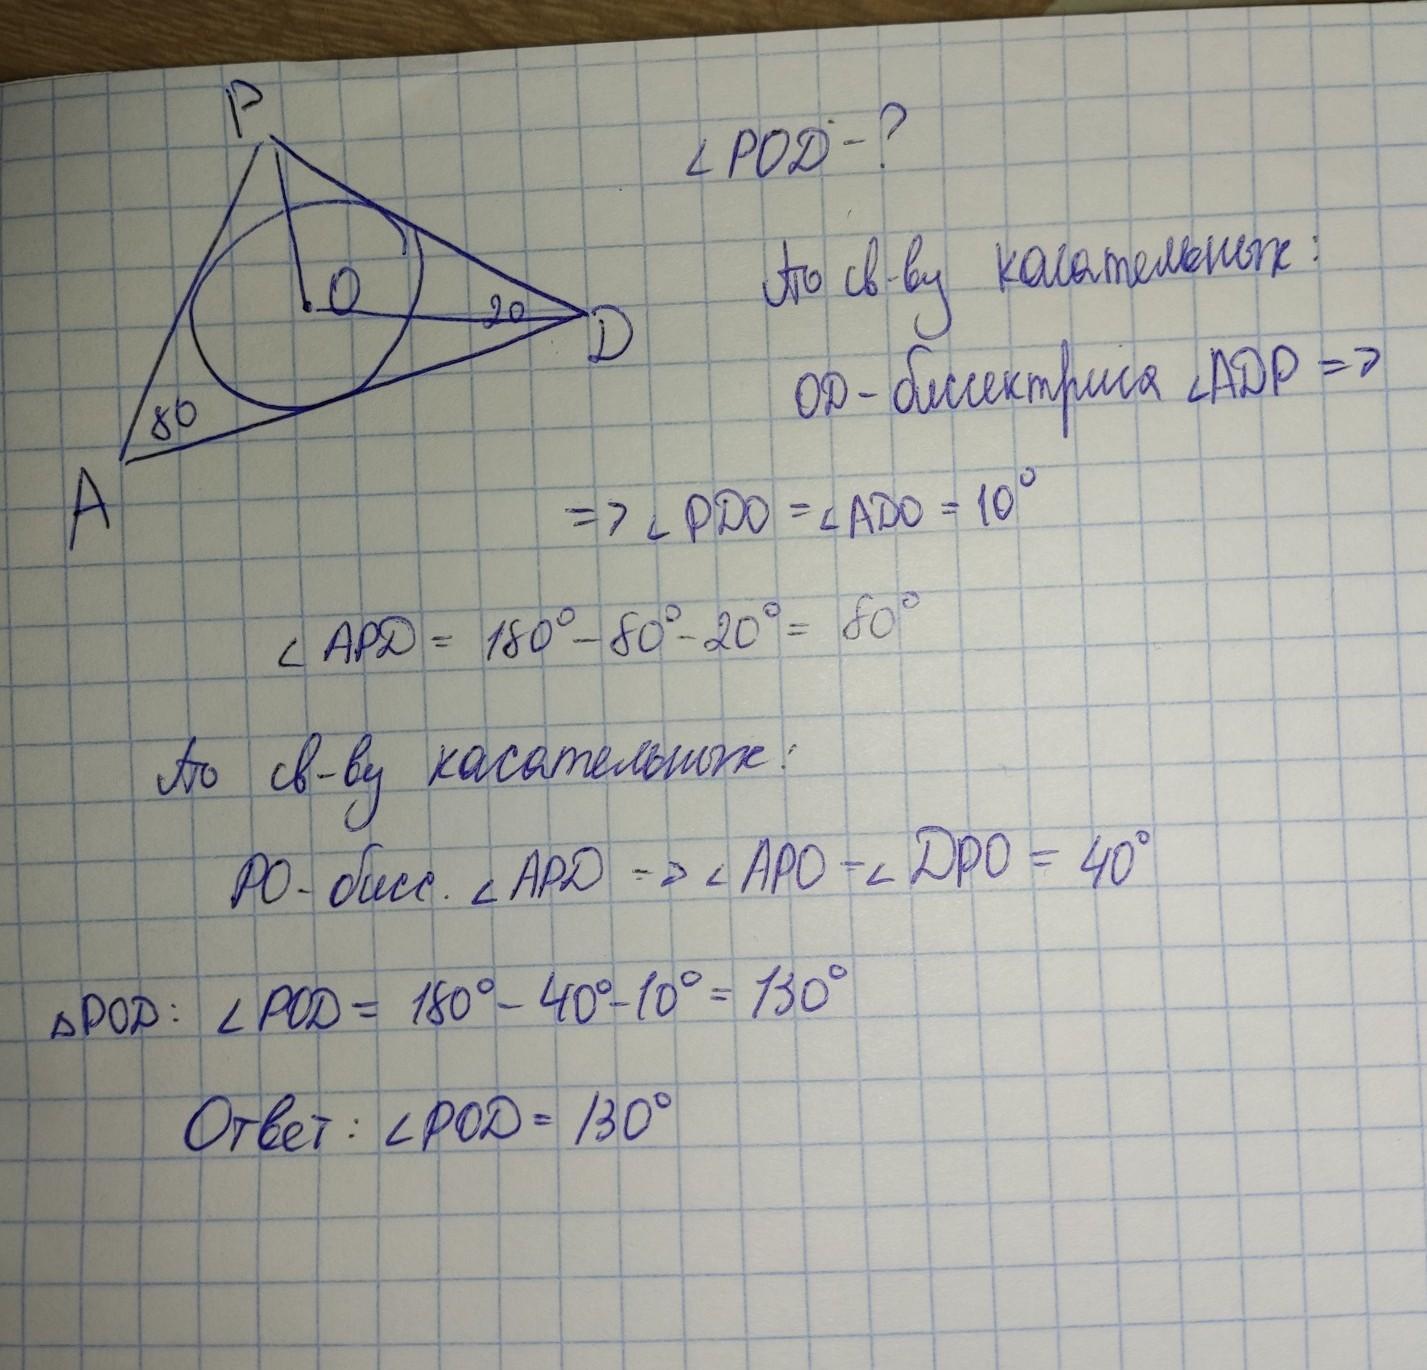 P
∠POD-?
O
20
D
80
A
По св-ву касательных:
OD-биссектриса ∠ADP =>
=> ∠PDO = ∠ADO = 10°
∠APD = 180° - 80° - 20° = 80°
По св-ву касательных:
PO-бисс. ∠APD => ∠APO = ∠DPO = 40°
△POD: ∠POD = 180° - 40° - 10° = 130°
Ответ: ∠POD = 130°